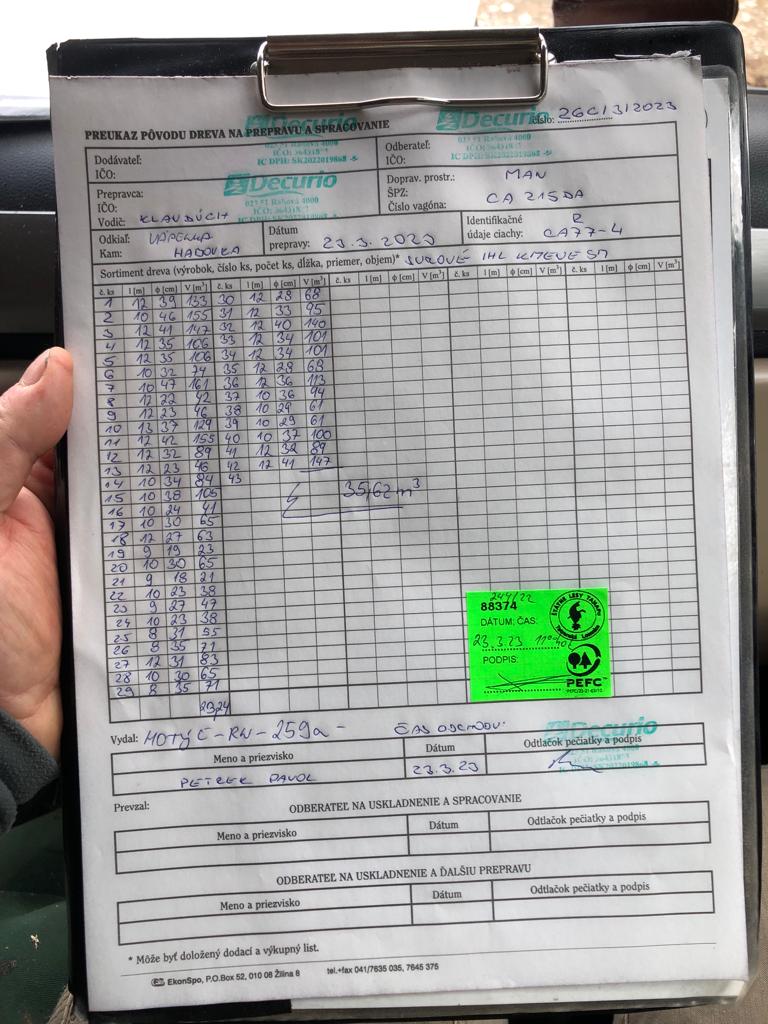 Decurio
Decurio
PREUKAZ PÔVODU DREVA NA PREPRAVU A SPRACOVANIE
Číslo: 26C/3/2023
023 51 Raková 4000
023 51 Raková 4000
IC DPH: SK2022019868
IC DPH: SK2022019868
Dodávateľ:
IČO:
Odberateľ:
IČO:
Decurio
023 51 Raková 4000
IC DPH: SK2022019868
Prepravca:
IČO:
Vodič: KLAVDÚCH
Doprav. prostr.: MAN
ŠPZ: CA 215DA
Číslo vagóna:
Odkiaľ: VÁPENNA
Kam: HADOVKA
Dátum
prepravy: 23.3.2023
Identifikačné R
údaje ciachy: CA77-4
Sortiment dreva (výrobok, číslo ks, počet ks, dĺžka, priemer, objem)* SUROVÉ IHL KMEŇE SM
č. ks l [m] ϕ [cm] V [m³] č. ks l [m] ϕ [cm] V [m³] č. ks l [m] ϕ [cm] V [m³] č. ks l [m] ϕ [cm] V [m³] č. ks l [m] ϕ [cm] V [m³]
1 12 39 133 30 12 28 68
2 10 46 155 31 12 33 95
3 12 41 147 32 12 40 140
4 12 35 106 33 12 34 101
5 12 35 106 34 12 34 101
6 10 32 74 35 12 28 68
7 10 47 161 36 12 36 113
8 12 22 42 37 10 36 94
9 12 23 46 38 10 29 61
10 13 37 129 39 10 29 61
11 12 42 155 40 10 37 100
12 12 32 89 41 12 32 89
13 12 23 46 42 12 41 147
14 10 34 84 43
15 10 38 105
16 10 24 41
17 10 30 65
18 12 27 63
19 9 19 23
20 10 30 65
21 9 18 21
22 10 23 38
23 9 27 47
24 10 23 38
25 8 31 55
26 8 35 71
27 12 31 83
28 10 30 65
29 8 35 71
23,24
35,62 m³
244/22
88374
DÁTUM, ČAS:
23.3.23 11⁰⁰
PODPIS:
ŠTÁTNE LESY TANAPU
Tatranská Lomnica
PEFC
Vydal: MOTYČ-RN-259a-
ČAS ODCHODU:
Decurio
Meno a priezvisko
Dátum
Odtlačok pečiatky a podpis
PETREK PAVOL
23.3.23
Prevzal:
ODBERATEĽ NA USKLADNENIE A SPRACOVANIE
Meno a priezvisko
Dátum
Odtlačok pečiatky a podpis
ODBERATEĽ NA USKLADNENIE A ĎALŠIU PREPRAVU
Meno a priezvisko
Dátum
Odtlačok pečiatky a podpis
* Môže byť doložený dodací a výkupný list.
EkonSpo, P.O.Box 52, 010 08 Žilina 8 tel.+fax 041/7635 035, 7645 375